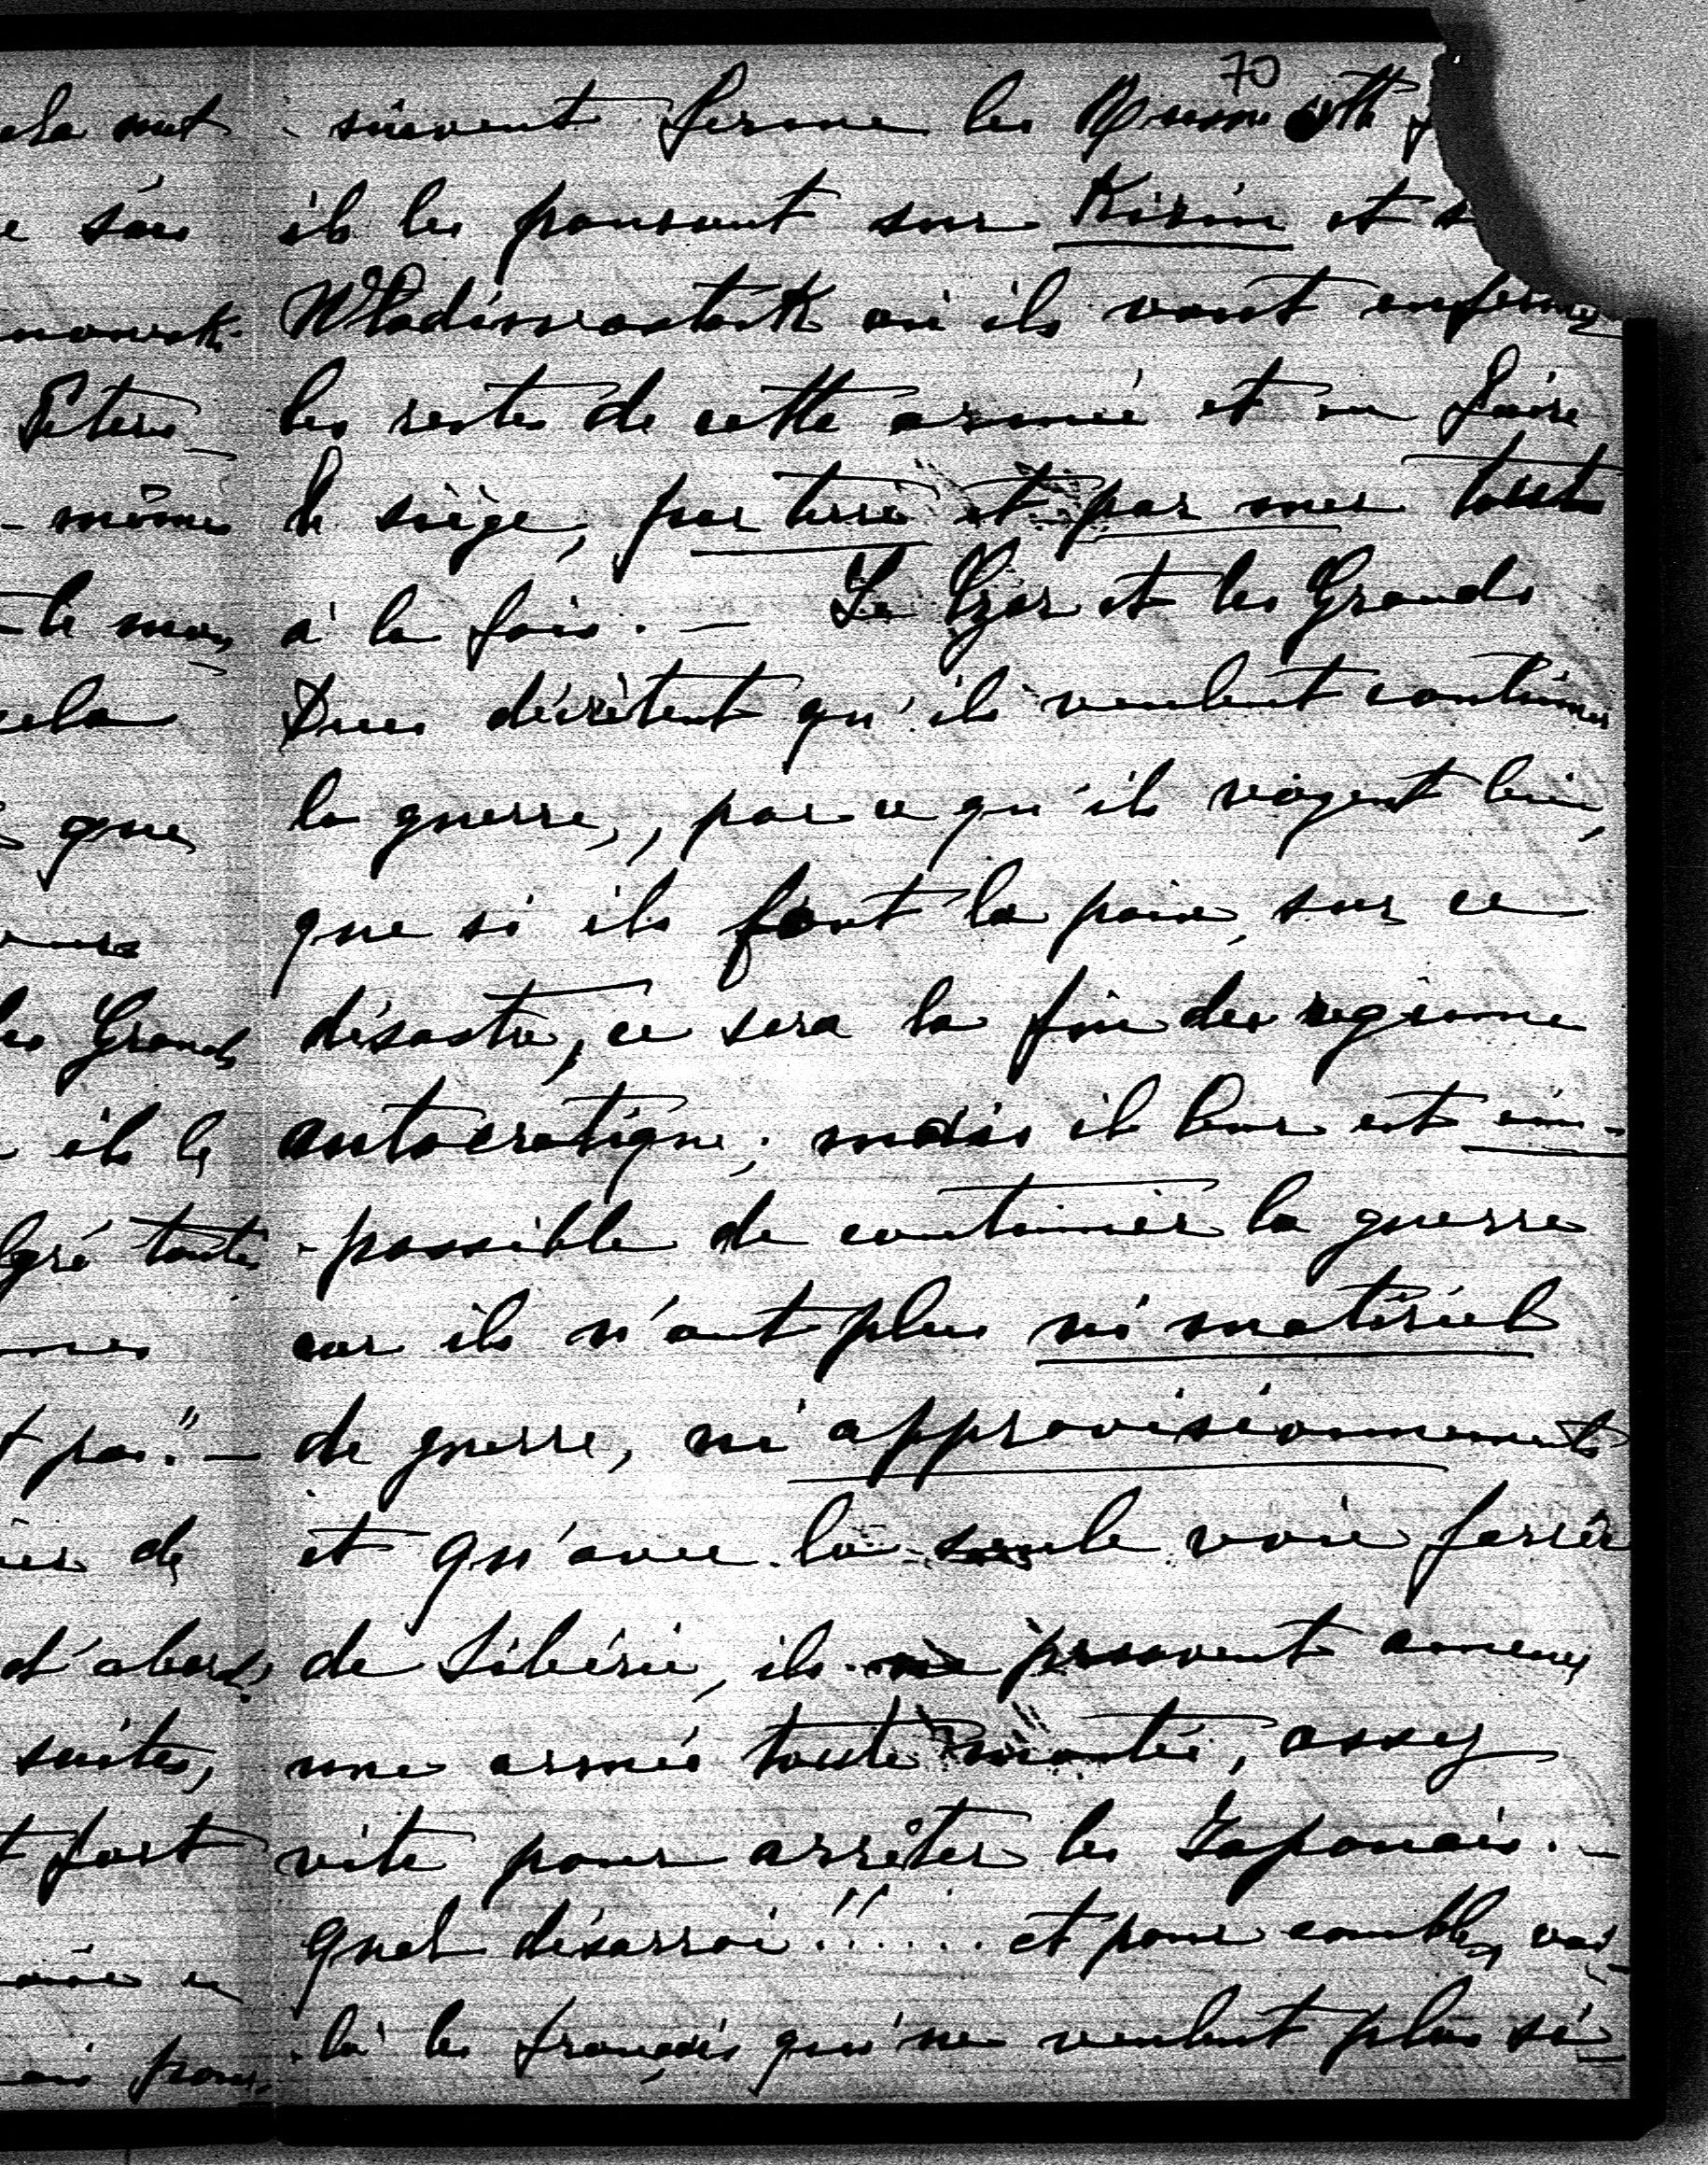 70
suivent ferme les Russes et
ils les poussent sur Kirin et s
Wladiwostock où ils vont enfermer
les restes de cette armée et en faire
le siège, par terre et par mer toute
à la fois. — Le Czar et les Grands
Ducs décrètent qu'ils veulent continuer
la guerre, par ce qu'ils voyent bien,
que si ils font la paix, sur ce
désastre, ce sera la fin des regime
autocratique; mais il leur est im-
-possible de continuer la guerre
car ils n'ont plus ni matériel
de guerre, ni approvisionnements
et qu'avec la seule voie ferrée
de Sibérie, ils ne peuvent amener
une armée toute montée, assez
vite pour arrêter les Japonais. —
quel désarroi!!..... et pour comble, voi-
-là les français qui ne veulent plus si-
ela met
e sais
Peters-
- même
cela
que
les Grands
ils le
lgré toute
t pas." —
de
d'abord,
suites,
t fort
pour